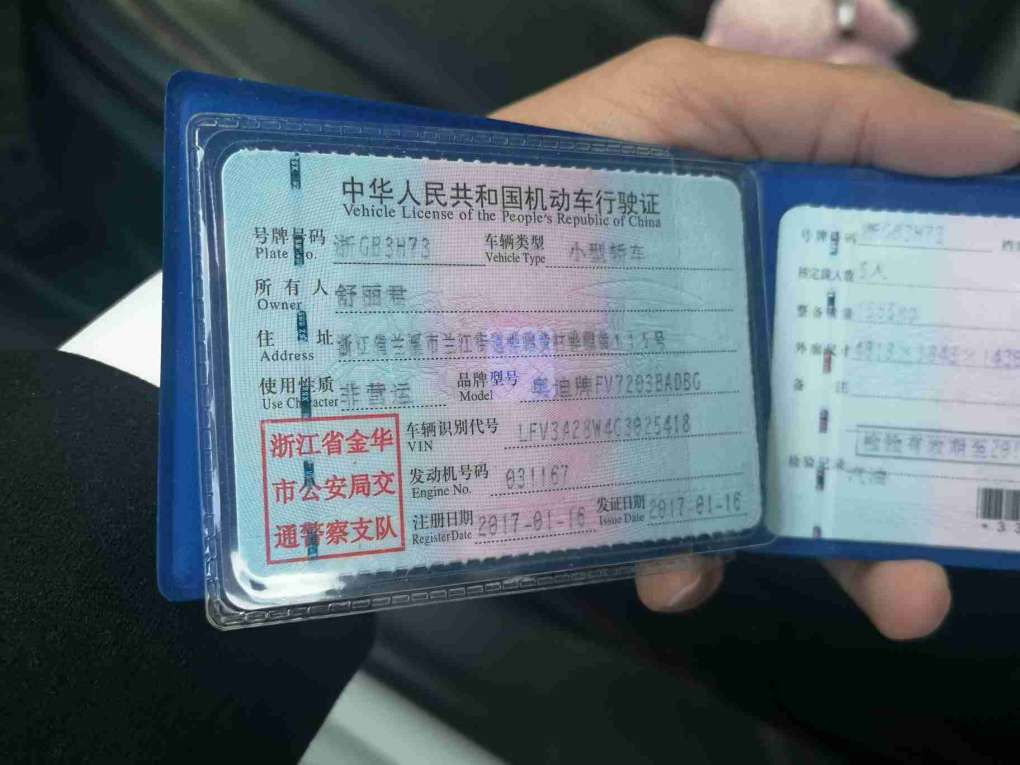 中华人民共和国机动车行驶证
Vehicle License of the People's Republic of China
号牌号码 浙GB3H73 车辆类型 小型轿车
Plate No. Vehicle Type
所有人 舒丽君
Owner
住址 浙江省兰溪市兰江街道
Address
使用性质 非营运 品牌型号 奥迪牌FV7203BADBG
Use Character Model
车辆识别代号 LFV3A28W4G3025418
VIN
发动机号码 031167
Engine No.
注册日期 2017-01-16 发证日期 2017-01-16
Register Date Issue Date
浙江省金华
市公安局交
通警察支队
号牌号码 浙GB3H73
核定载人数 5人
整备质量
外廓尺寸
备注
检验有效期至201
检验记录 汽油